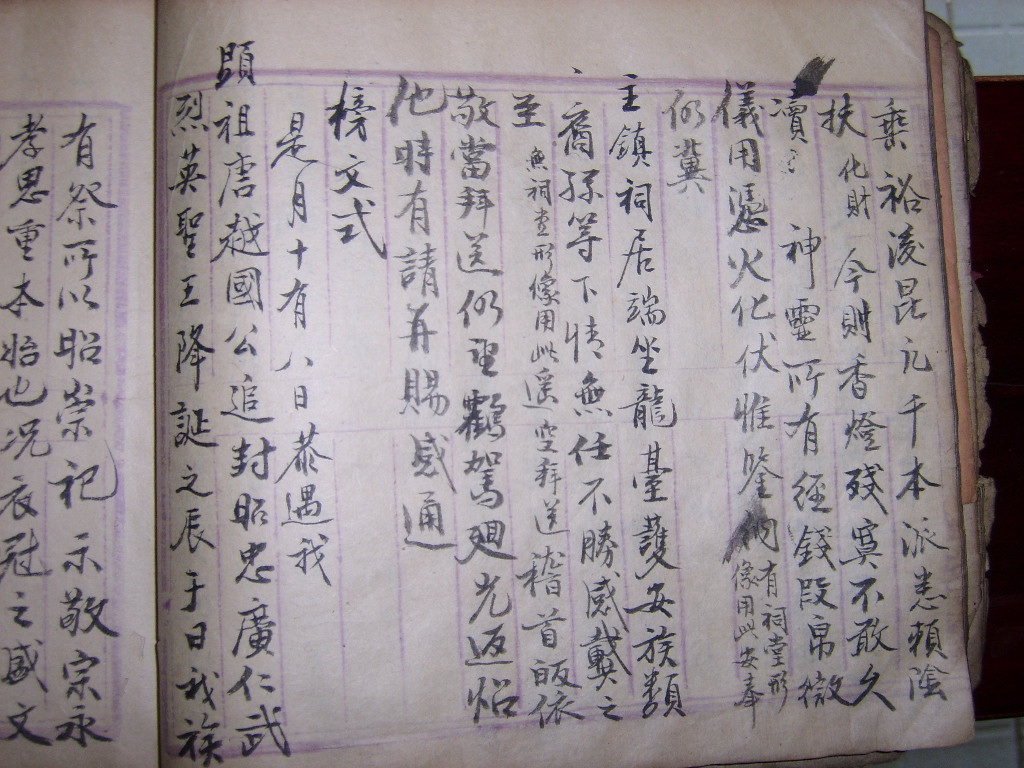 乗裕後昆凢千本派悉賴陰
扶化財今則香燈殘寞不敢久
瀆 神靈所有經錢段帛徽
儀用憑火化伏惟鑒納有祠堂形像用此安奉
仍冀
主鎮祠居端坐龍基護安族類
裔孫等下情無任不勝感戴之
至無祠堂形像用此遥空拜送稽首皈依
敬當拜送仍望鸖駕廻光返炤
他時有請并賜感通
榜文式
是月十有八日恭遇我
顕祖唐越國公追封昭忠廣仁武
烈英聖王降誕之辰于日我族
有祭所以昭崇祀示敬宗永
孝思重本始也况衣冠之盛文